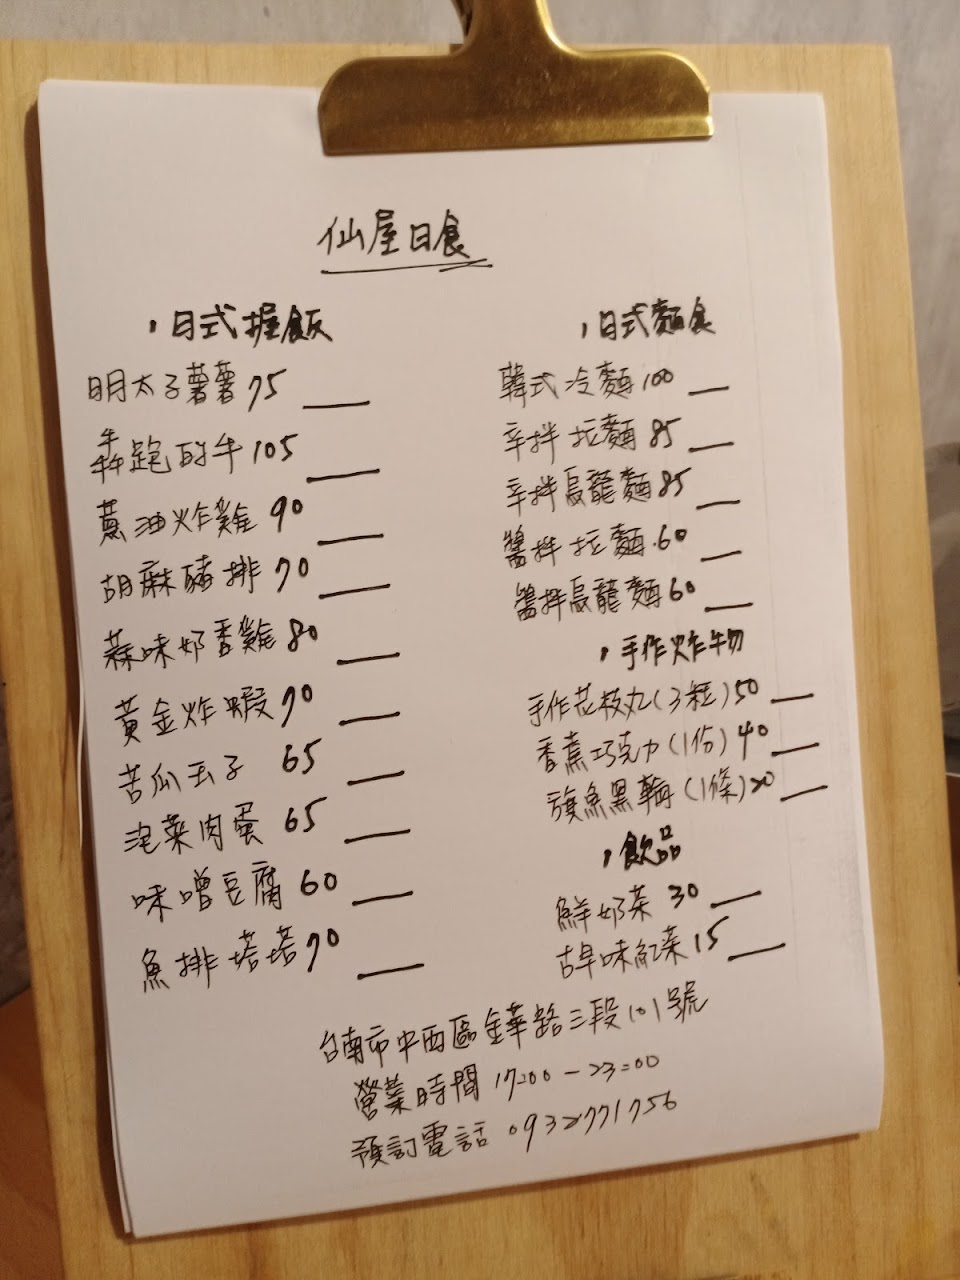 仙屋日食
,日式握飯
明太子薯薯 75
犇跑的牛 105
蔥油炸雞 90
胡麻豬排 70
蒜味奶香雞 80
黃金炸蝦 70
苦瓜玉子 65
泡菜肉蛋 65
味噌豆腐 60
魚排塔塔 70
,日式麵食
韓式冷麵 100
辛拌拉麵 85
辛拌烏龍麵 85
醬拌拉麵 60
醬拌烏龍麵 60
,手作炸物
手作花枝丸(3粒) 50
香蕉巧克力(1份) 40
旗魚黑輪(1條) 20
,飲品
鮮奶茶 30
古早味紅茶 15
台南市中西區金華路三段101號
營業時間 17:00-23:00
預訂電話 0932771756